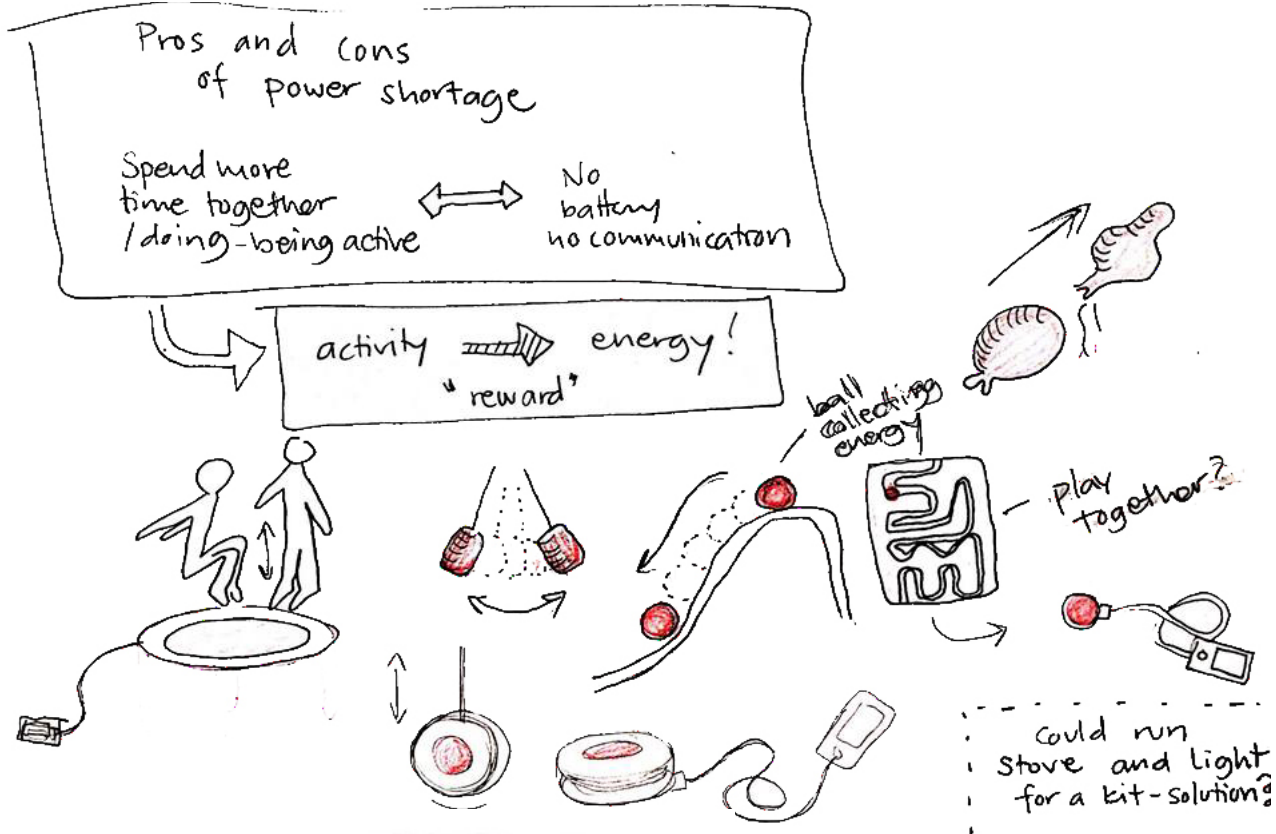 Pros and cons
of power shortage
Spend more
time together
/doing-being active
No
battery
no communication
activity energy!
"reward"
ball
collecting
energy
play
together?
could run
stove and light
for a kit-solution?